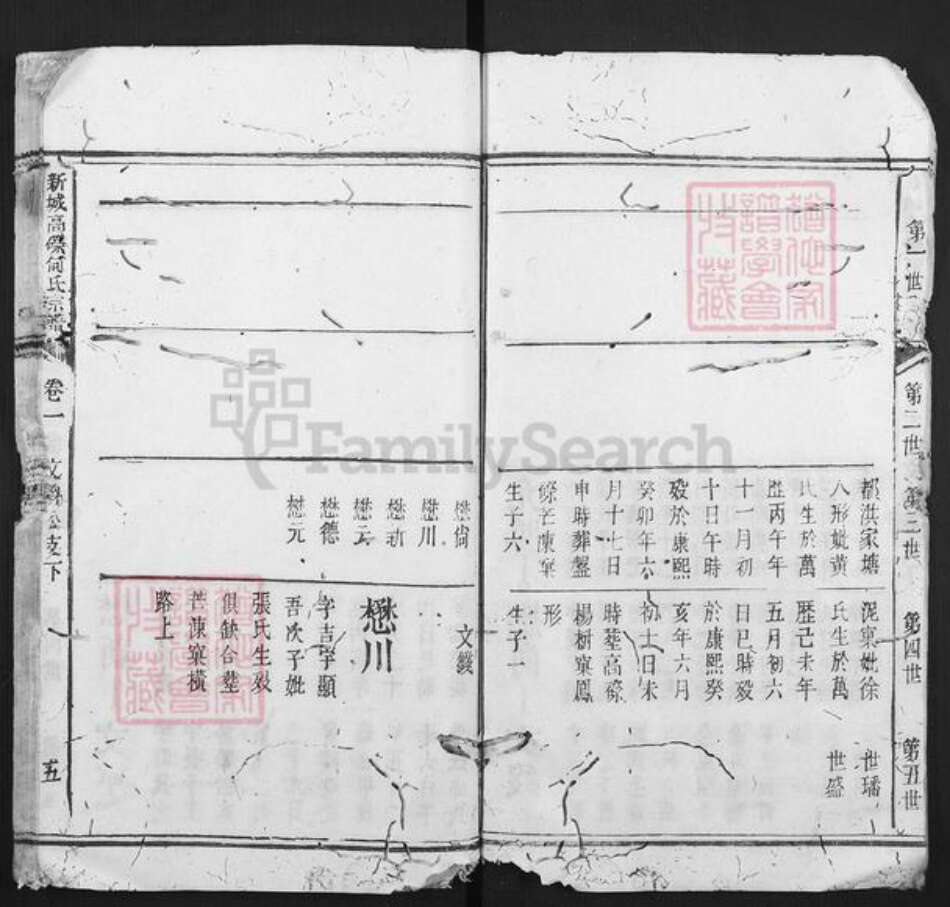 第一世
第二世
第三世
第四世
第五世
都洪家塘
八形妣黃
氏生於萬
歷丙午年
十一月初
十日午時
歿於康熙
癸卯年六
月十七日
申時葬盤
條芒凍窠
生子六
泥窠妣徐
氏生於萬
歷己未年
五月初六
日巳時歿
於康熙癸
亥年六月
初十日未
時塟高條
楊樹窠鳳
形
生子一
世璠
世盛
懋尙
懋川
懋新
懋云
懋德
懋元
懋川
字吉孚顯
吾次子妣
張氏生歿
俱缺合塟
芒凍窠橫
路上
新城高磜何氏宗譜
卷一
公支下
五
譜學會
收藏
FamilySearch